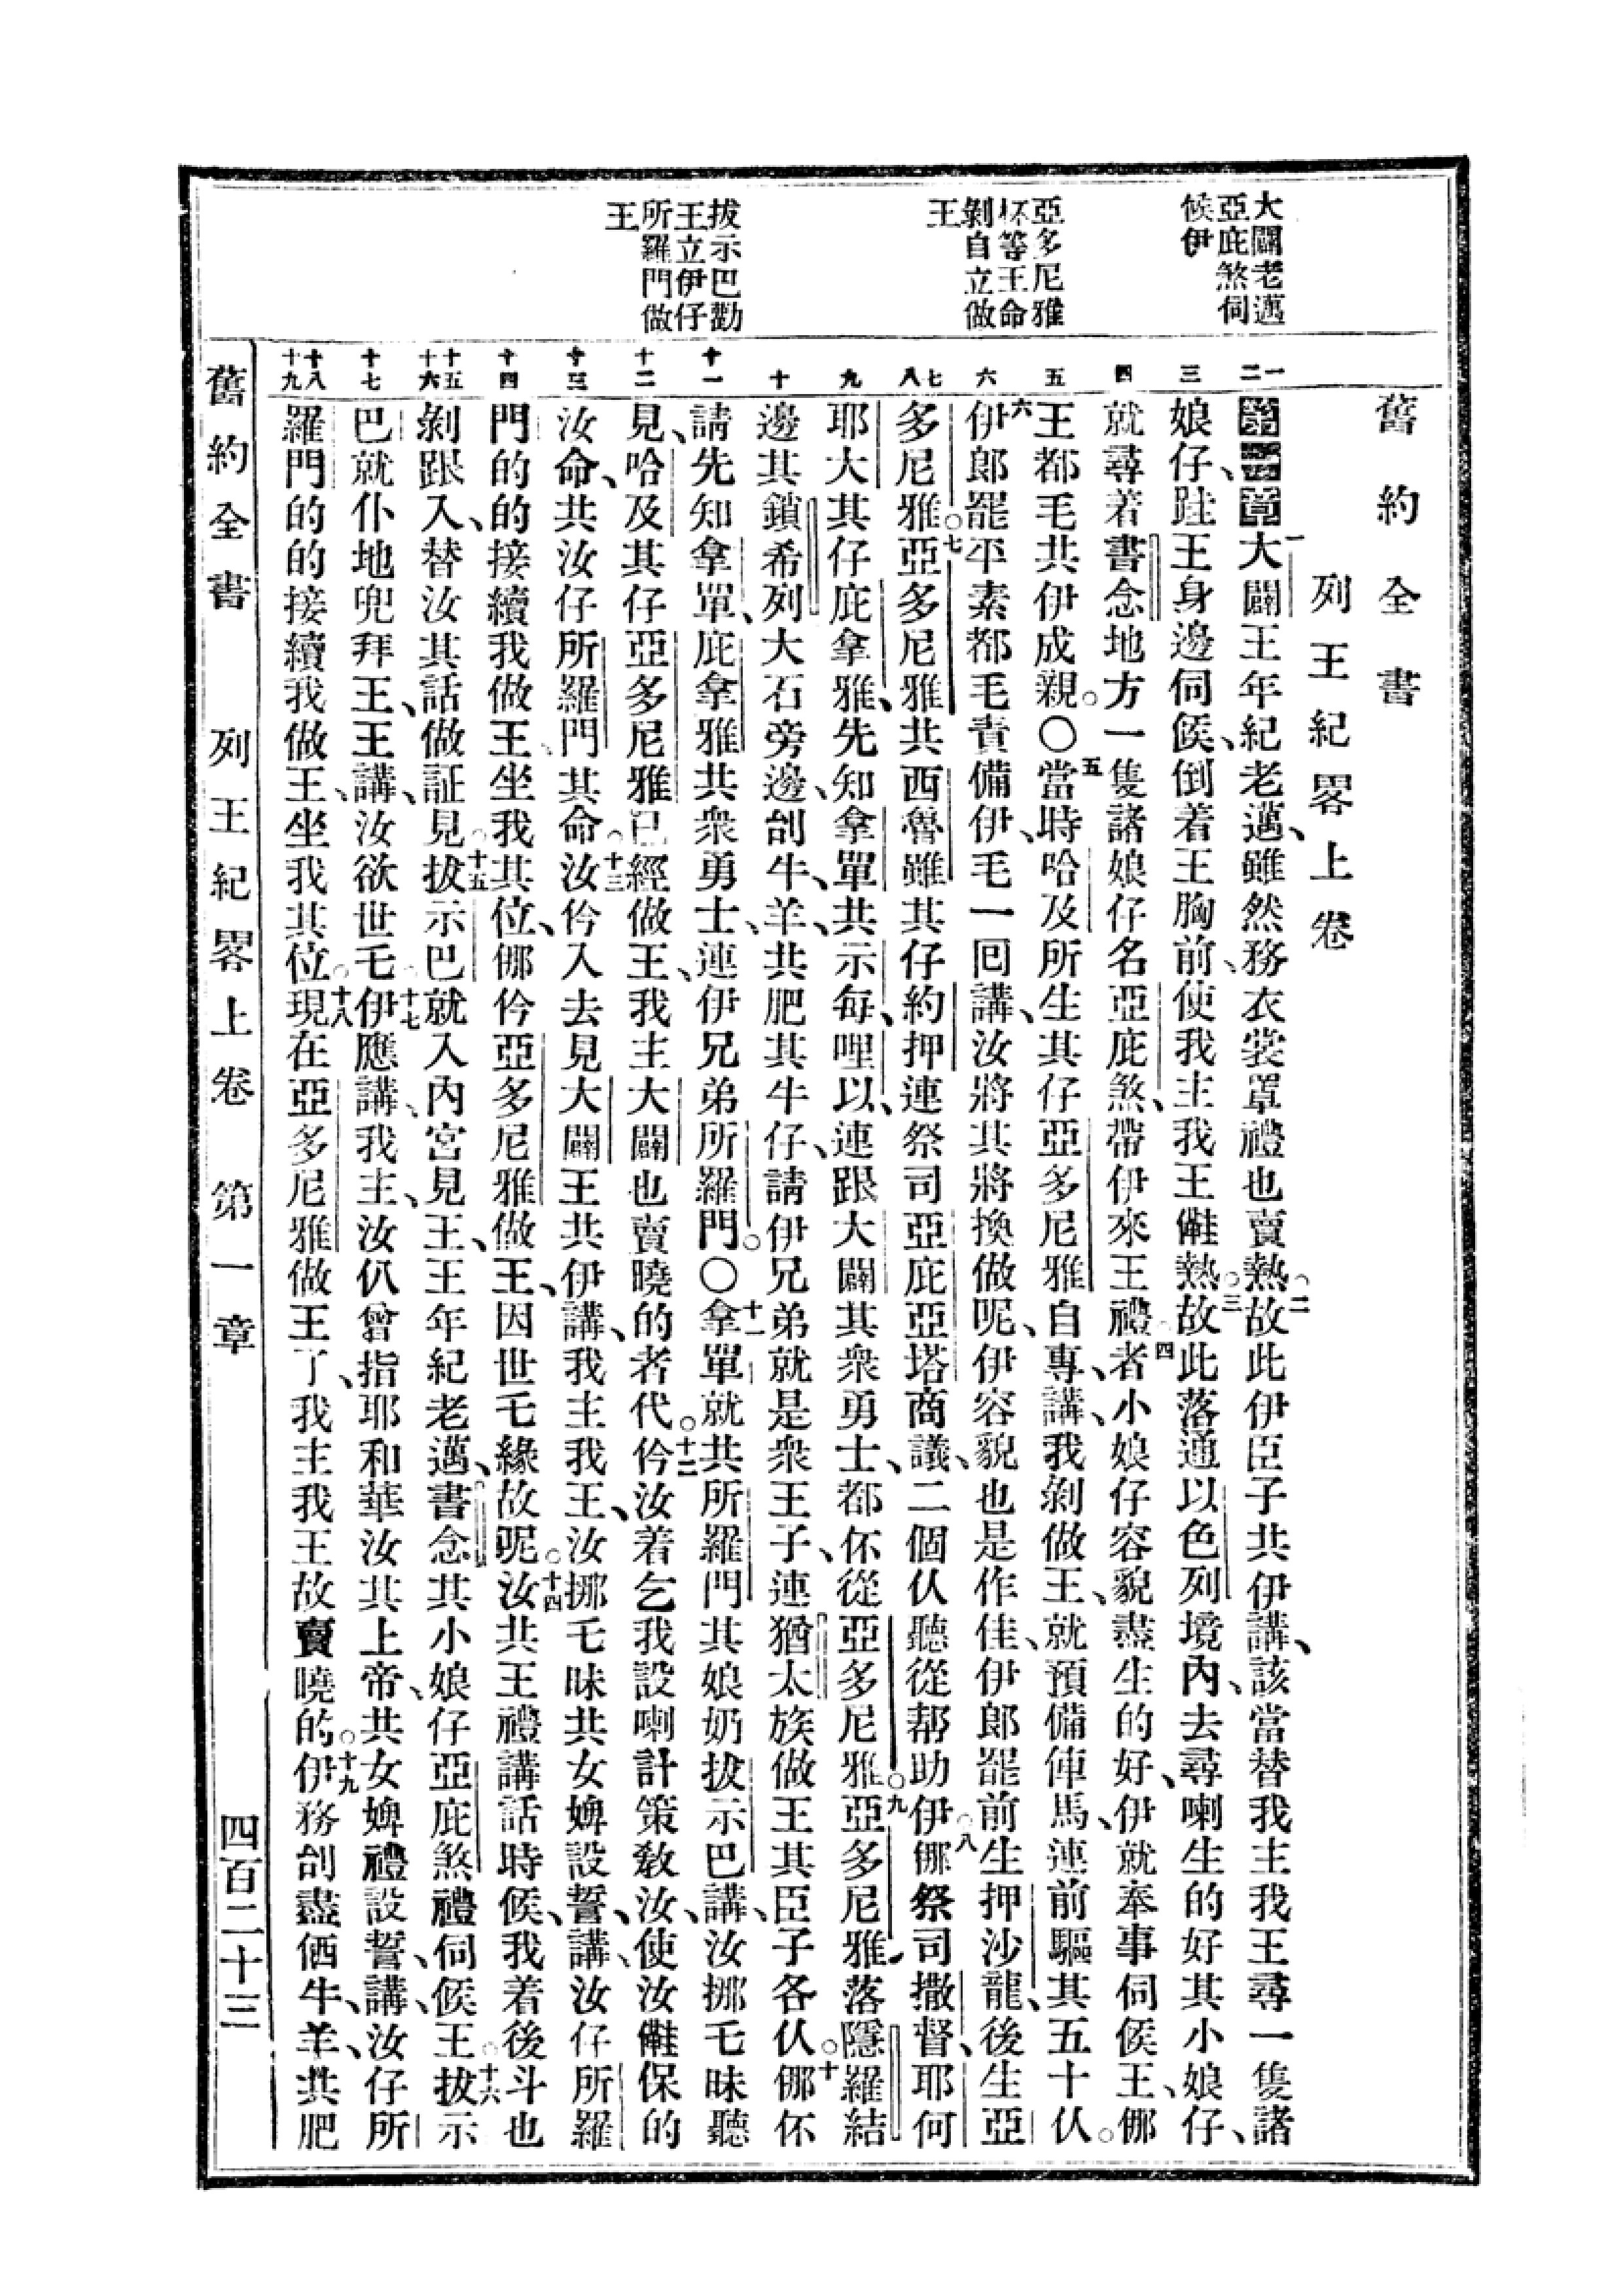 舊約全書
列王紀畧上卷
大闢老邁
亞庇煞伺
候伊
亞多尼雅
怀等王命
剝自立做
王
拔示巴勸
王立伊仔
所羅門做
王
一
二
三
四
五
六
七
八
九
十
十一
十二
十三
十四
十五
十六
十七
十八
十九
第一章一大闢王年紀老邁、雖然務衣裳罩禮也賣熱。二故此伊臣子共伊講、該當替我主我王尋一隻諸
娘仔、跬王身邊伺候、倒着王胸前、使我主我王𣍐熱。三故此落通以色列境內、去尋喇生的好其小娘仔、
就尋着書念地方一隻諸娘仔名亞庇煞、帶伊來王禮。四者小娘仔容貌盡生的好、伊就奉事伺候王、
王都毛共伊成親。〇五當時哈及所生其仔亞多尼雅自專、講、我剝做王、就預備俥馬、連前驅其五十仈。
六伊郎罷平素都毛責備伊、毛一囘講、汝將其將換做呢、伊容貌也是作佳、伊郎罷前生押沙龍、後生亞
多尼雅。七亞多尼雅共西魯雖其仔約押連祭司亞庇亞塔商議、二個仈聽從帮助伊。八祭司撒督、耶何
耶大其仔庇拿雅、先知拿單、共示每、哩以、連跟大闢其衆勇士、都伓從亞多尼雅。九亞多尼雅落隱羅結
邊其鎖希列大石旁邊、刣牛、羊、共肥其牛仔、請伊兄弟就是衆王子、連猶太族做王其臣子各仈。十伓
請先知拿單、庇拿雅共衆勇士、連伊兄弟所羅門。〇十一拿單就共所羅門其娘奶拔示巴講、汝挪毛昧聽
見、哈及其仔亞多尼雅已經做王、我主大闢也賣曉的者代。十二伶汝着乞我設喇計策敎汝、使汝保的
汝命、共汝仔所羅門其命。十三汝伶入去見大闢王共伊講、我主我王、汝挪毛昧共女婢設誓、講、汝仔所羅
門的的接續我做王、坐我其位、伶亞多尼雅做王、因世毛緣故呢。十四汝共王禮講話時候、我着後斗也
剝跟入、替汝其話做証見。十五拔示巴就入內宮見王、王年紀老邁、書念其小娘仔亞庇煞禮伺候王。十六拔示
巴就仆地兜拜王、王講、汝欲世毛。十七伊應講、我主、汝仈曾指耶和華汝其上帝、共女婢禮設誓、講、汝仔所
羅門的的接續我做王、坐我其位。十八現在亞多尼雅做王了、我主我王故賣曉的。十九伊務刣盡価牛、羊、共肥
舊約全書　列王紀畧上卷　第一章　四百二十三